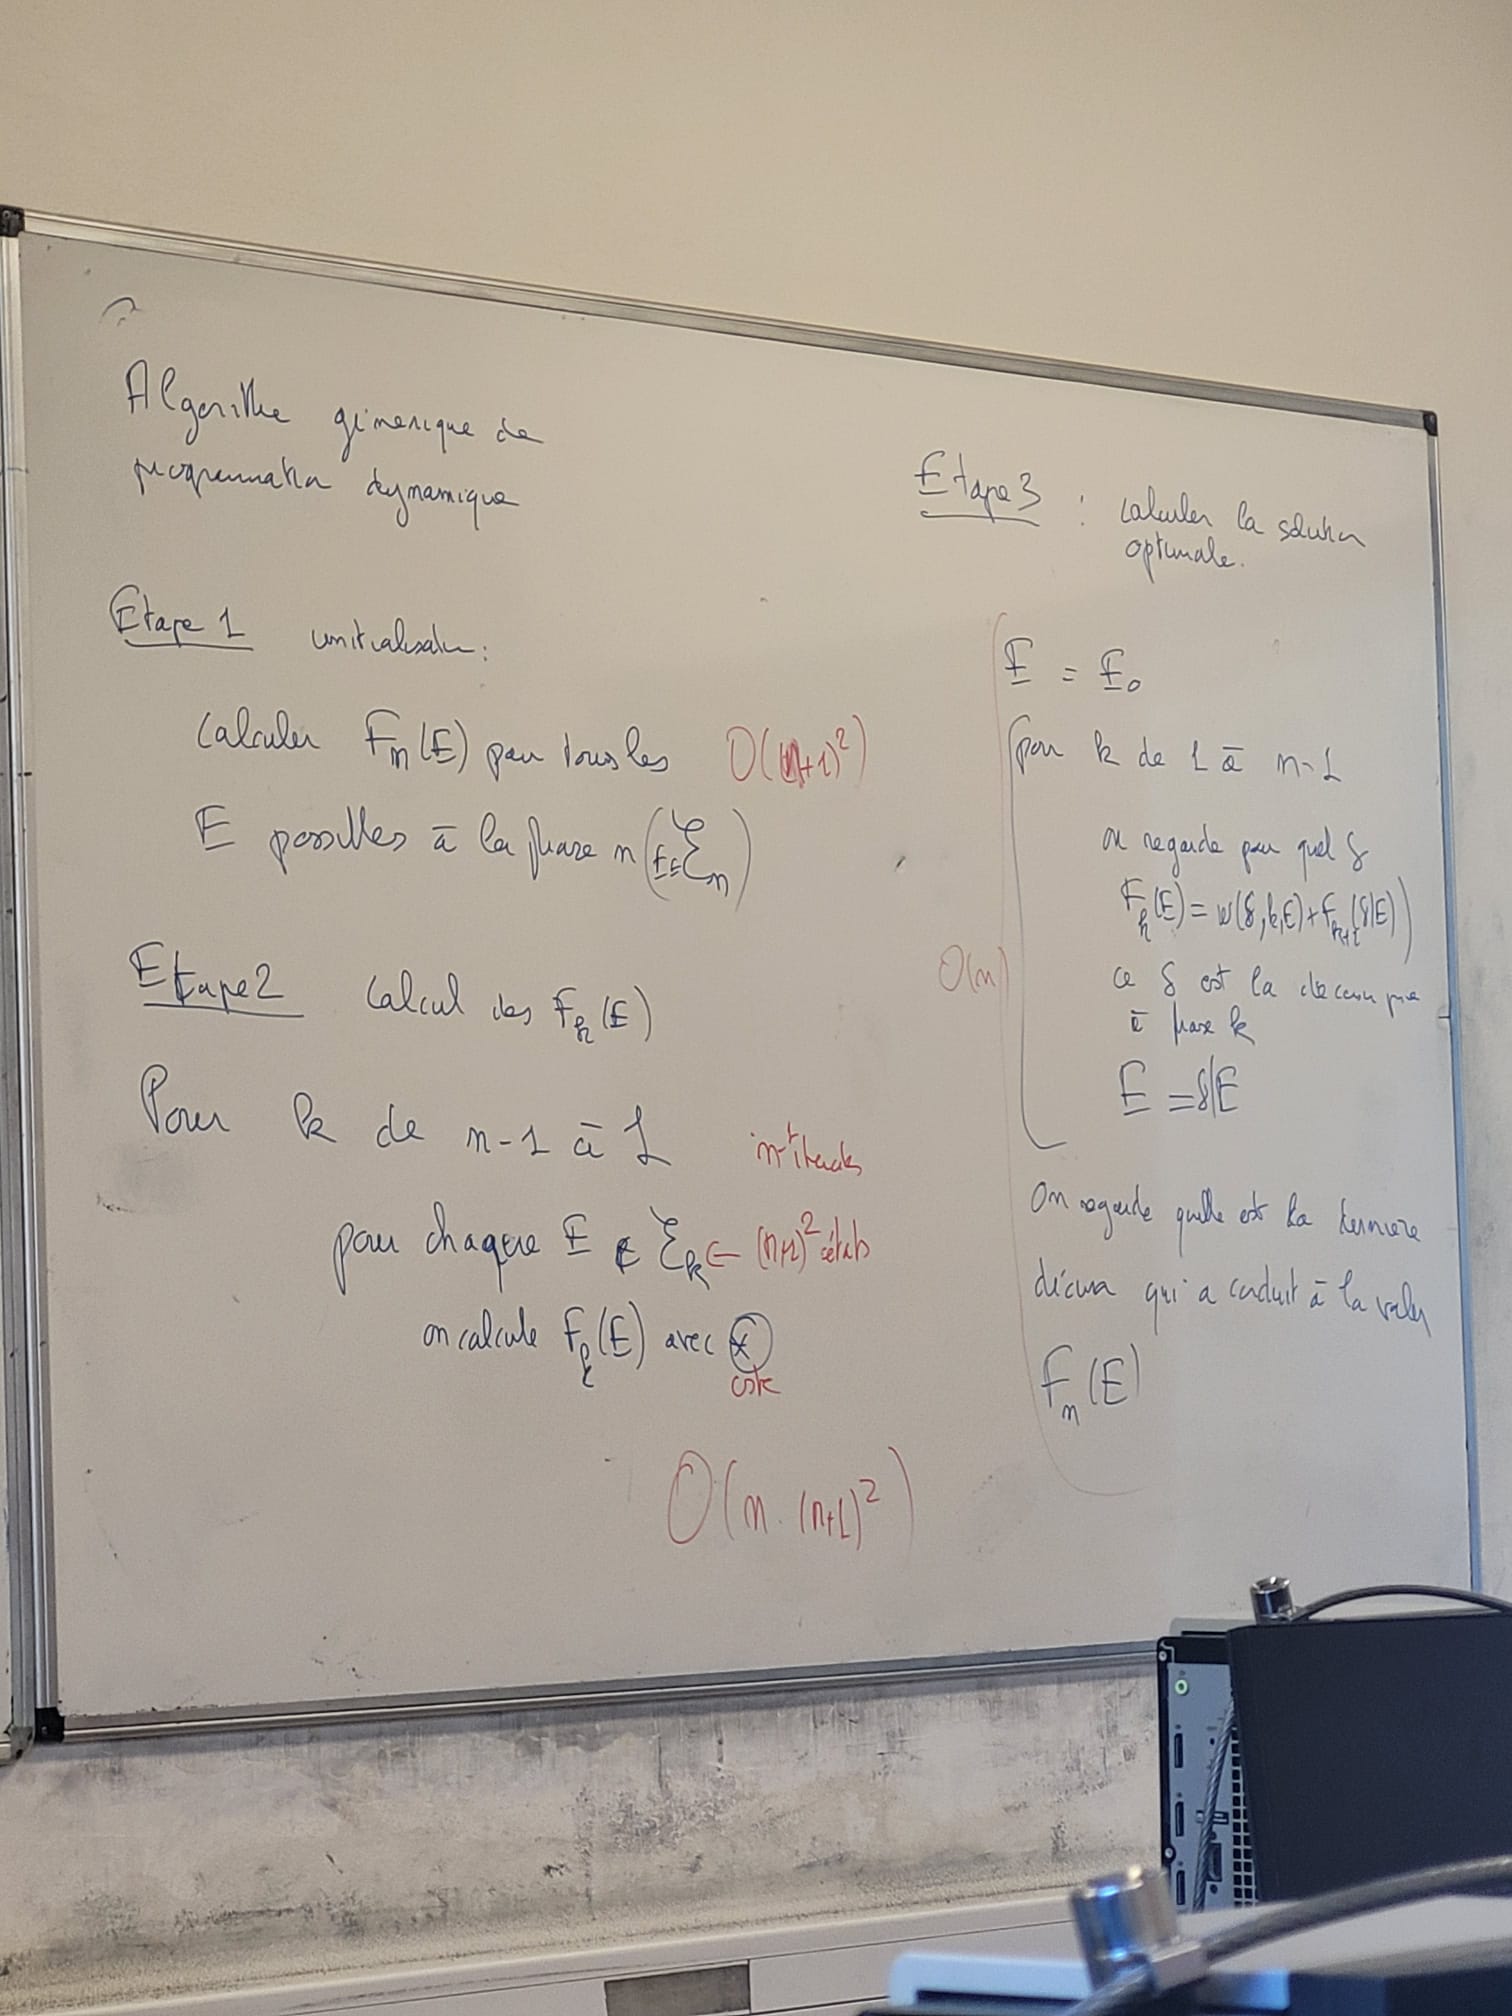 Algorithme générique de
programmation dynamique
Etape 1 initialisation :
calculer Fₙ(E) pour tous les O((n+1)²)
E possibles à la phase n (E ∈ ℰₙ)
Etape 2 calcul des Fₖ(E)
Pour k de n-1 à 1 n-1 iterations
pour chaque E ∈ ℰₖ ← (n+1)² états
on calcule Fₖ(E) avec (*)
cste
O(n. (n+1)²)
Etape 3 : calculer la solution
optimale.
E = E₀
pour k de 1 à n-1
on regarde pour quel δ
Fₖ(E) = w(δ,k,E)+Fₖ₊₁(δ|E))
ce δ est la decision prise
à phase k
O(n)
E = δ|E
On regarde quelle est la derniere
décision qui a conduit à la valeur
Fₙ(E)